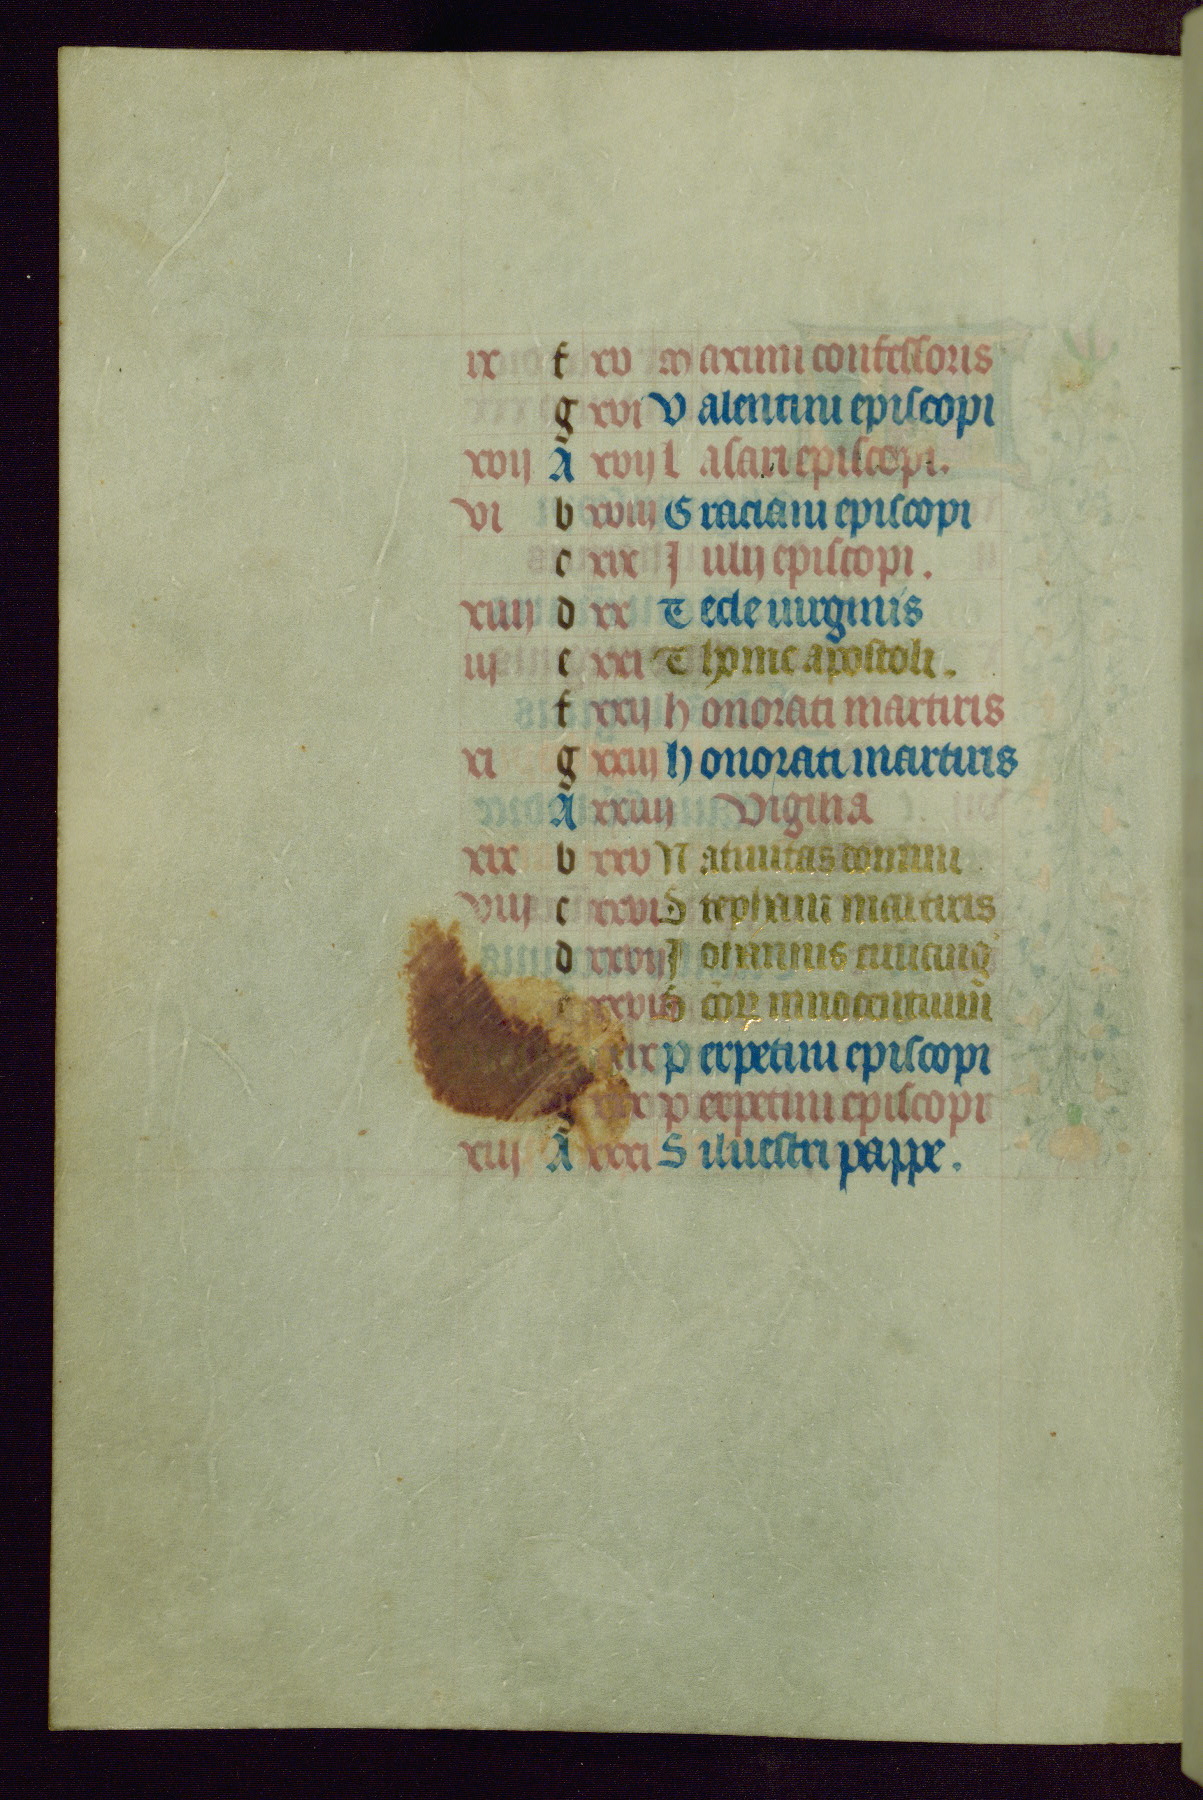 ix f xv Maximi confessoris
g xvi Valentini episcopi
xvij A xvij Lasari episcopi.
vi b xviij Graciani episcopi
c xix Julij episcopi.
xiiij d xx Tecle uirginis
iij e xxi Thome apostoli.
f xxij honorati martiris
xi g xxiij honorati martiris
A xxiiij vigilia
xix b xxv Natiuitas domini
viij c xxvi Stephani martiris
d xxvij Johannis euuang
e xxviij innocentium
perpetui episcopi
g xxx perpetui episcopi
xiij A xxxi Siluestri pappe.